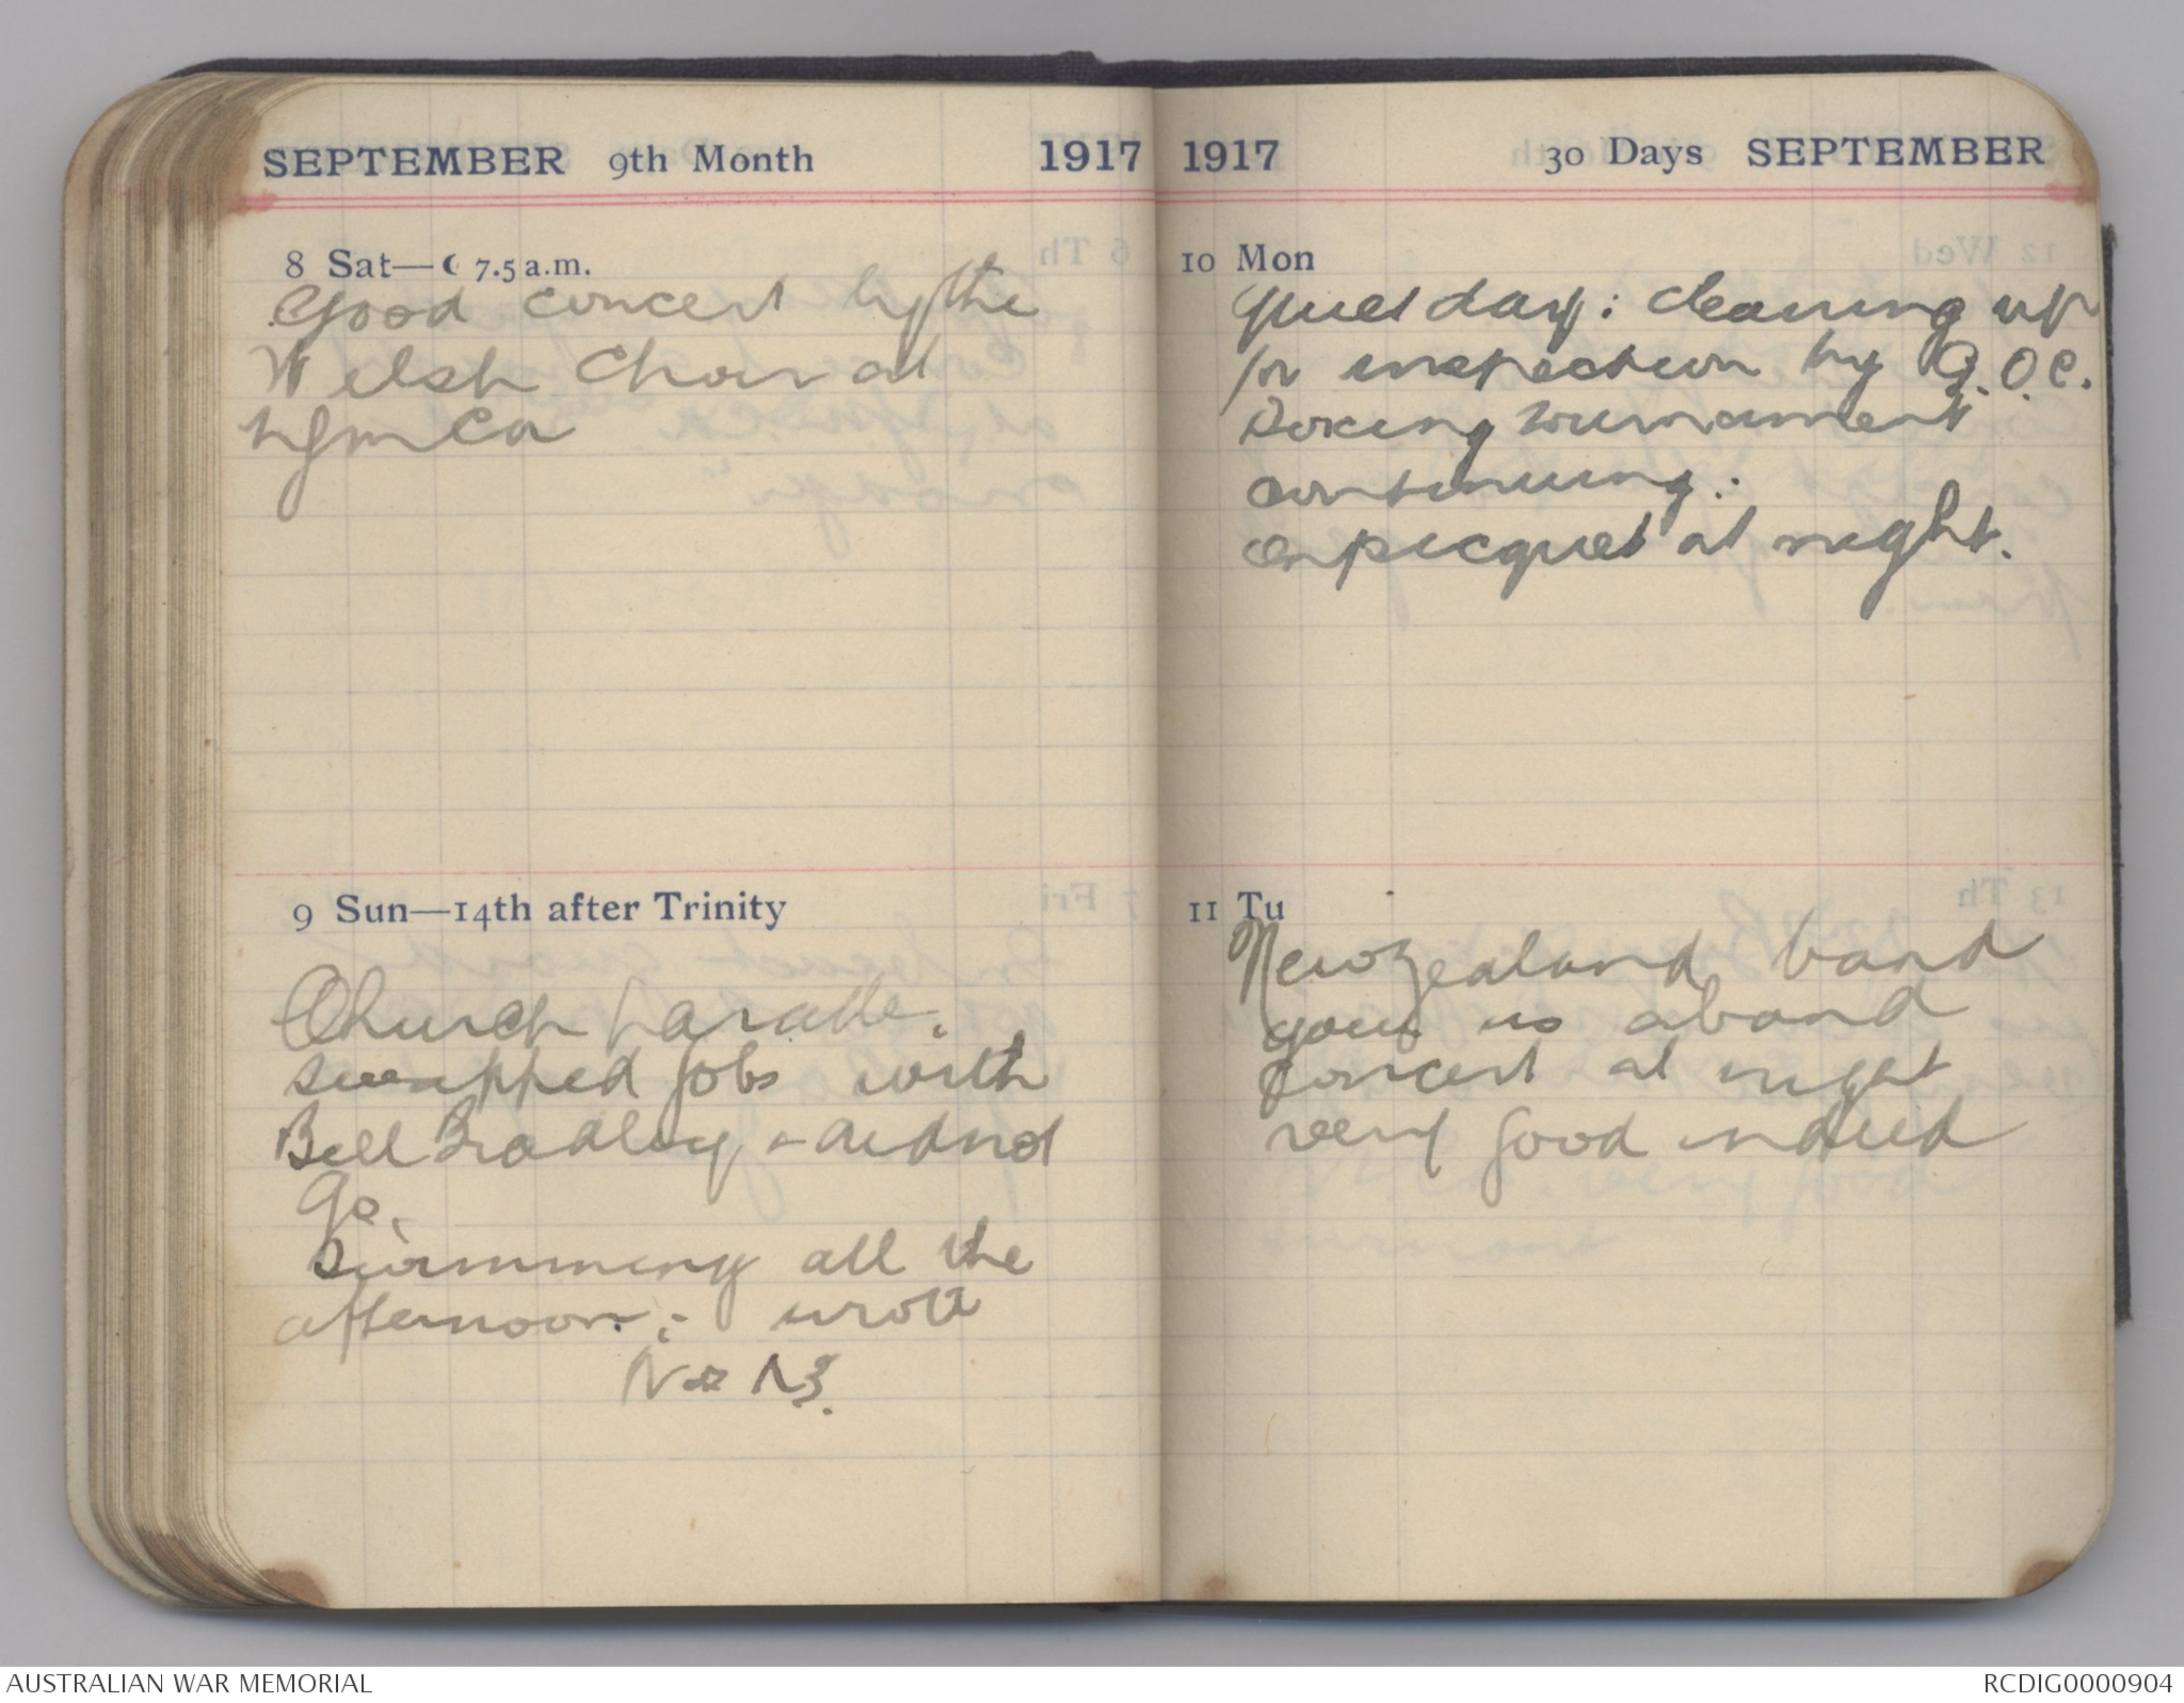 SEPTEMBER 9th Month 1917
8 Sat—☾ 7.5 a.m.
Good concert by the
Welsh Choir at
YMCA
9 Sun—14th after Trinity
Church parade.
Swapped jobs with
Bill Bradley & did not
go.
Swimming all the
afternoon: wrote
1917 30 Days SEPTEMBER
10 Mon
Quiet day: cleaning up
for inspection by G.O.C.
Boxing tournament
continuing:
on picquet at night.
11 Tu
New Zealand band
gave us a band
concert at night
very good indeed
AUSTRALIAN WAR MEMORIAL
RCDIG0000904